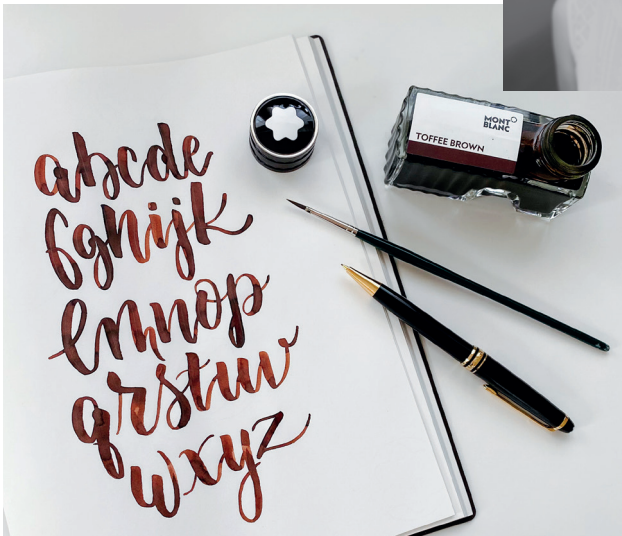 abcde
fghijk
lmnop
qrstuv
wxyz
MONT
BLANC
TOFFEE BROWN